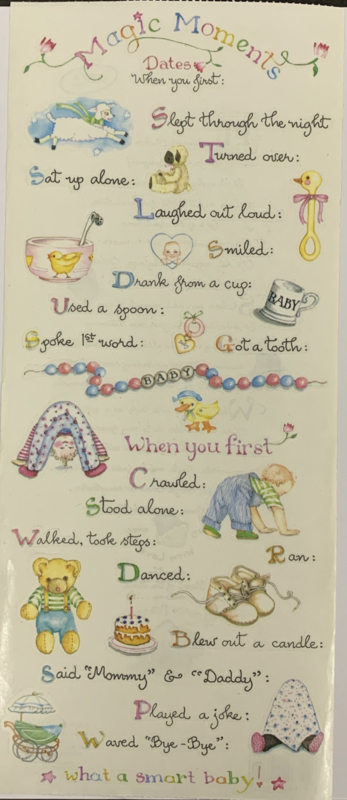 Magic Moments
Dates
When you first:
Slept through the night
Turned over:
Sat up alone:
Laughed out loud:
Smiled:
Drank from a cup:
BABY
Used a spoon:
Spoke 1st word:
Got a tooth:
BABY
When you first
Crawled:
Stood alone:
Walked, took steps:
Ran:
Danced:
Blew out a candle:
Said "Mommy" & "Daddy":
Played a joke:
Waved "Bye-Bye":
what a smart baby!